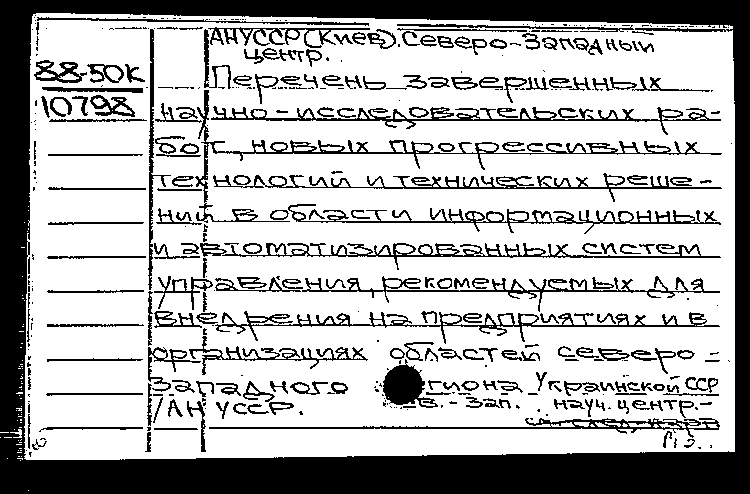 АН УССР (Киев). Северо-Западный
центр.
88-50К
Перечень завершенных
10798
научно-исследовательских ра-
бот, новых прогрессивных
технологий и технических реше-
ний в области информационных
и автоматизированных систем
управления, рекомендуемых для
внедрения на предприятиях и в
организациях областей северо-
западного гиона Украинской ССР
/АН УССР. в.-Зап. науч. центр.-